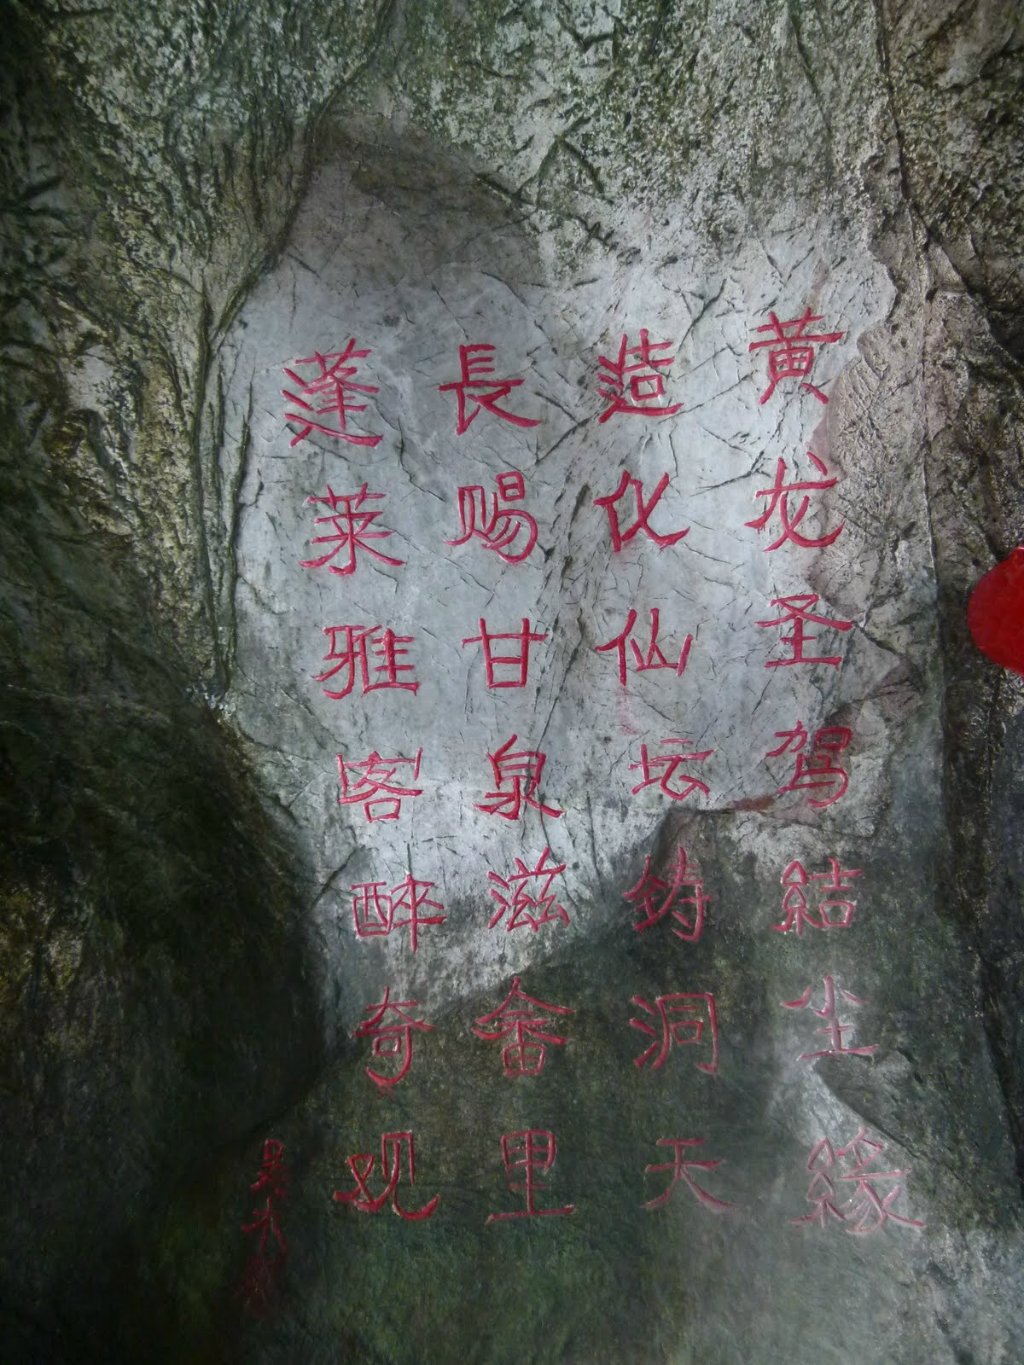 黄龙圣驾結尘緣
造化仙坛铸洞天
長赐甘泉滋畲里
蓬莱雅客醉奇观